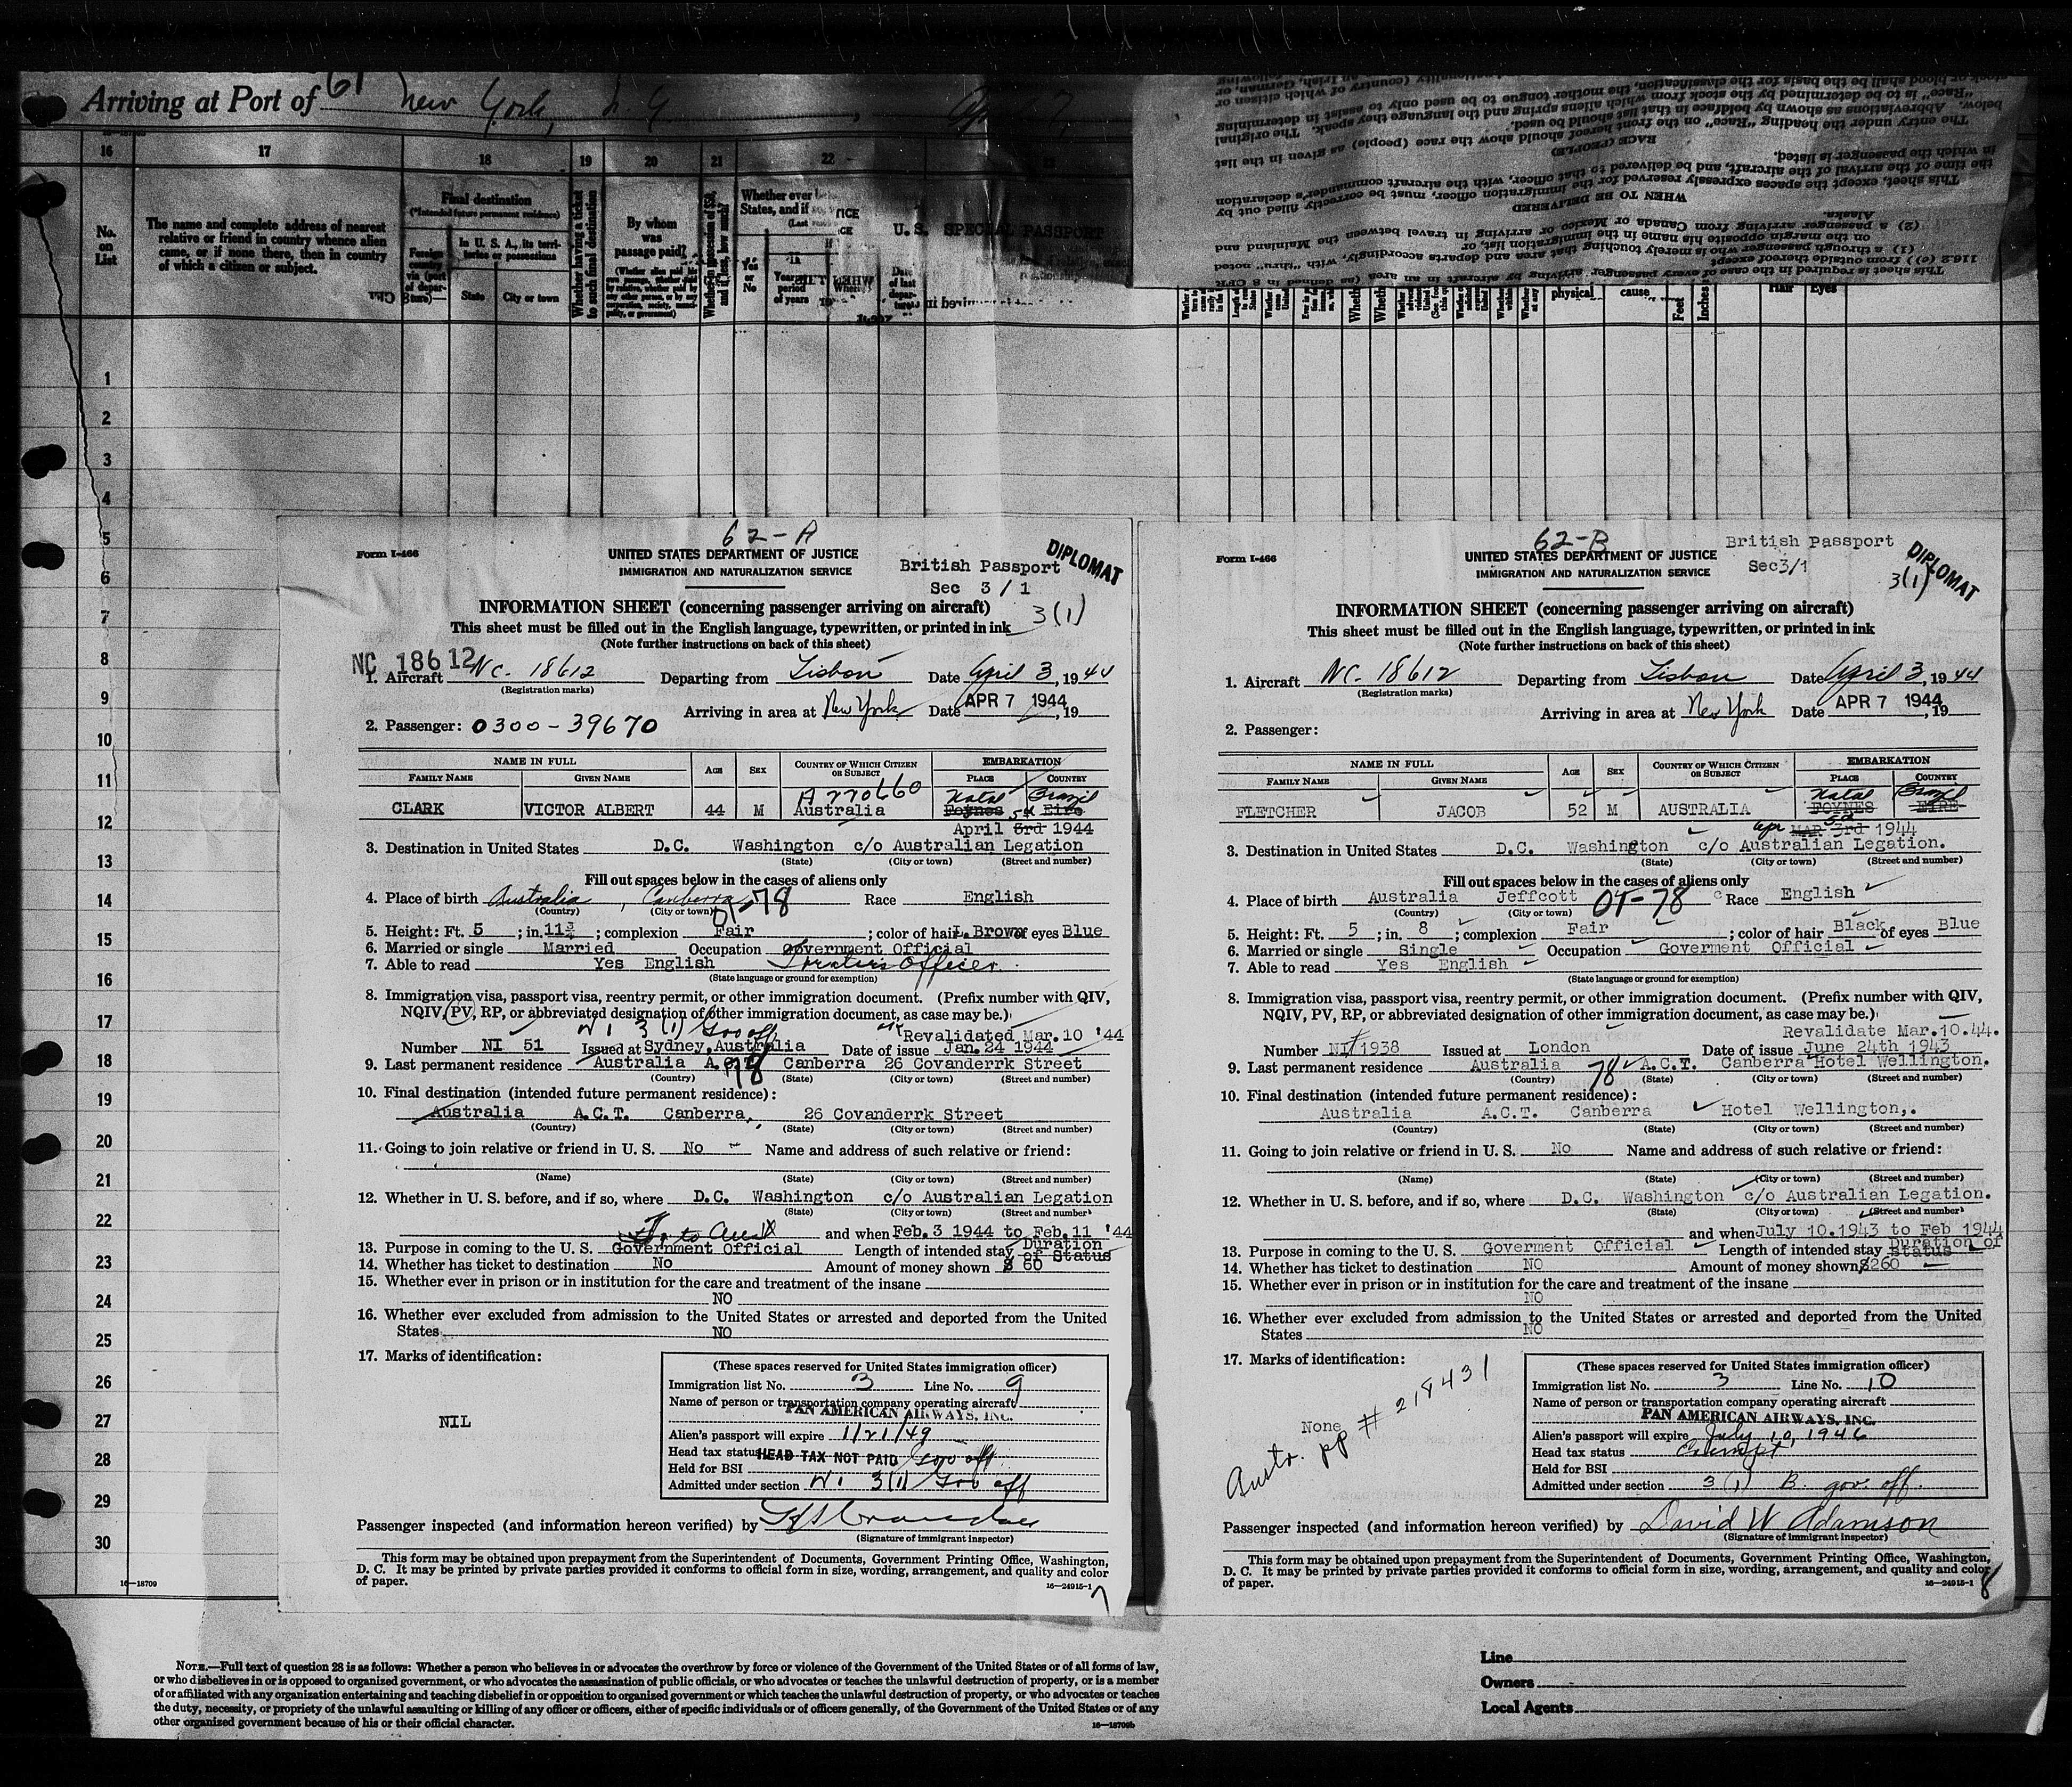 Arriving at Port of New York, N.Y.
16 17 18 19 20 21 22
No. on List
The name and complete address of nearest
relative or friend in country whence alien
came, or if none there, then in country
of which a citizen or subject.
Final destination
(*Intended future permanent residence)
Foreign
via (port
of depar-
ture)—
In U. S. A., its terri-
tories or possessions
State
City or town
Whether having a ticket
to such final destination
By whom
was
passage paid?
Whether ever
States, and if
Yes
or
No
Year
period
of years
Where
Date
of last
depar-
ture
U. S. SPECIAL PASSPORT
This sheet is required in the case of every passenger arriving by aircraft in an area (as defined in 8 CFR
116.2 (c)) from outside thereof except
(1) a through passenger who is merely touching that area and departs accordingly, with "thru" noted
on the margin opposite his name in the immigration list, or
(2) a passenger arriving from Canada or Mexico or arriving in travel between the Mainland and
Alaska.
WHEN TO BE DELIVERED
This sheet, except the spaces expressly reserved for the immigration officer, must be correctly filled out by
the time of the arrival of the aircraft, and be delivered to that officer, with the aircraft commander's declaration
in which the passenger is listed.
RACE (PEOPLE)
The entry under the heading "Race" on the front hereof should show the race (people) as given in the list
below. Abbreviations as shown by boldface in that list should be used. The original
"Race" is to be determined by the stock from which aliens spring and the language they speak.
stock or blood shall be the basis for the classification, the mother tongue to be used only to assist in determining
physical
cause
Feet
Inches
Hair
Eyes
1
2
3
4
5
6
7
8
9
10
11
12
13
14
15
16
17
18
19
20
21
22
23
24
25
26
27
28
29
30
16—18709
62-A
Form I-466
UNITED STATES DEPARTMENT OF JUSTICE
IMMIGRATION AND NATURALIZATION SERVICE
British Passport
DIPLOMAT
Sec 3/1
3(1)
INFORMATION SHEET (concerning passenger arriving on aircraft)
This sheet must be filled out in the English language, typewritten, or printed in ink
(Note further instructions on back of this sheet)
NC 18612
1. Aircraft NC-18612 Departing from Lisbon Date April 3, 1944
(Registration marks)
Arriving in area at New York Date APR 7 1944, 19
2. Passenger: 0300-39670
NAME IN FULL AGE SEX COUNTRY OF WHICH CITIZEN OR SUBJECT EMBARKATION
FAMILY NAME GIVEN NAME PLACE COUNTRY
A770660 Natal Brazil
CLARK VICTOR ALBERT 44 M Australia Foynes Eire
April 3rd 5th 1944
3. Destination in United States D.C. Washington c/o Australian Legation
(State) (City or town) (Street and number)
Fill out spaces below in the cases of aliens only
4. Place of birth Australia, Canberra Race English
(Country) (City or town) 01-78
5. Height: Ft. 5; in. 11¾; complexion Fair; color of hair L. Brown of eyes Blue
6. Married or single Married Occupation Government Official
7. Able to read Yes English
(State language or ground for exemption)
8. Immigration visa, passport visa, reentry permit, or other immigration document. (Prefix number with QIV,
NQIV, PV, RP, or abbreviated designation of other immigration document, as case may be.)
3 (1) Gov off Revalidated Mar. 10 '44
Number NI 51 Issued at Sydney, Australia Date of issue Jan. 24 1944
9. Last permanent residence Australia A.C.T. Canberra 26 Covanderrk Street
(Country) 78 (State) (City or town) (Street and number)
10. Final destination (intended future permanent residence):
Australia A.C.T. Canberra, 26 Covanderrk Street
(Country) (State) (City or town) (Street and number)
11. Going to join relative or friend in U. S. No Name and address of such relative or friend:
(Name) (State) (City or town) (Street and number)
12. Whether in U. S. before, and if so, where D.C. Washington c/o Australian Legation
(State) (City or town) (Street and number)
and when Feb. 3 1944 to Feb. 11 '44
13. Purpose in coming to the U. S. Government Official Length of intended stay Duration of Status
14. Whether has ticket to destination No Amount of money shown $ 60
15. Whether ever in prison or in institution for the care and treatment of the insane
NO
16. Whether ever excluded from admission to the United States or arrested and deported from the United
States NO
17. Marks of identification:
NIL
(These spaces reserved for United States immigration officer)
Immigration list No. 3 Line No. 9
Name of person or transportation company operating aircraft
PAN AMERICAN AIRWAYS, INC.
Alien's passport will expire 1/21/49
Head tax status HEAD TAX NOT PAID gov off
Held for BSI
Admitted under section 3(1) Gov off
Passenger inspected (and information hereon verified) by
(Signature of immigrant inspector)
This form may be obtained upon prepayment from the Superintendent of Documents, Government Printing Office, Washington,
D. C. It may be printed by private parties provided it conforms to official form in size, wording, arrangement, and quality and color
of paper.
16—24915-1
7
62-B
Form I-466
UNITED STATES DEPARTMENT OF JUSTICE
IMMIGRATION AND NATURALIZATION SERVICE
British Passport
Sec3/1
DIPLOMAT
3(1)
INFORMATION SHEET (concerning passenger arriving on aircraft)
This sheet must be filled out in the English language, typewritten, or printed in ink
(Note further instructions on back of this sheet)
1. Aircraft NC-18612 Departing from Lisbon Date April 3, 1944
(Registration marks)
Arriving in area at New York Date APR 7 1944, 19
2. Passenger:
NAME IN FULL AGE SEX COUNTRY OF WHICH CITIZEN OR SUBJECT EMBARKATION
FAMILY NAME GIVEN NAME PLACE COUNTRY
Natal Brazil
FLETCHER JACOB 52 M AUSTRALIA FOYNES EIRE
Apr MAR 3rd 5th 1944
3. Destination in United States D.C. Washington c/o Australian Legation.
(State) (City or town) (Street and number)
Fill out spaces below in the cases of aliens only
4. Place of birth Australia Jeffcott 01-78 Race English
(Country) (City or town)
5. Height: Ft. 5; in. 8; complexion Fair; color of hair Black of eyes Blue
6. Married or single Single Occupation Goverment Official
7. Able to read Yes English
(State language or ground for exemption)
8. Immigration visa, passport visa, reentry permit, or other immigration document. (Prefix number with QIV,
NQIV, PV, RP, or abbreviated designation of other immigration document, as case may be.)
Revalidate Mar. 10. 44.
Number NI 1938 Issued at London Date of issue June 24th 1943
9. Last permanent residence Australia 78 A.C.T. Canberra Hotel Wellington.
(Country) (State) (City or town) (Street and number)
10. Final destination (intended future permanent residence):
Australia A.C.T. Canberra Hotel Wellington,.
(Country) (State) (City or town) (Street and number)
11. Going to join relative or friend in U. S. No Name and address of such relative or friend:
(Name) (State) (City or town) (Street and number)
12. Whether in U. S. before, and if so, where D.C. Washington c/o Australian Legation.
(State) (City or town) (Street and number)
and when July 10.1943 to Feb 1944
13. Purpose in coming to the U. S. Goverment Official Length of intended stay Duration of status
14. Whether has ticket to destination NO Amount of money shown $260
15. Whether ever in prison or in institution for the care and treatment of the insane
NO
16. Whether ever excluded from admission to the United States or arrested and deported from the United
States NO
17. Marks of identification:
None
Austr. pp # 218431
(These spaces reserved for United States immigration officer)
Immigration list No. 3 Line No. 10
Name of person or transportation company operating aircraft
PAN AMERICAN AIRWAYS, INC.
Alien's passport will expire July 10, 1946
Head tax status Exempt
Held for BSI
Admitted under section 3(1) B. gov. off.
Passenger inspected (and information hereon verified) by David W Adamson
(Signature of immigrant inspector)
This form may be obtained upon prepayment from the Superintendent of Documents, Government Printing Office, Washington,
D. C. It may be printed by private parties provided it conforms to official form in size, wording, arrangement, and quality and color
of paper.
16—24915-1
8
NOTE.—Full text of question 28 is as follows: Whether a person who believes in or advocates the overthrow by force or violence of the Government of the United States or of all forms of law,
or who disbelieves in or is opposed to organized government, or who advocates the assassination of public officials, or who advocates or teaches the unlawful destruction of property, or is a member
of or affiliated with any organization entertaining and teaching disbelief in or opposition to organized government or which teaches the unlawful destruction of property, or who advocates or teaches
the duty, necessity, or propriety of the unlawful assaulting or killing of any officer or officers, either of specific individuals or of officers generally, of the Government of the United States or of any
other organized government because of his or their official character.
16—18709b
Line
Owners
Local Agents